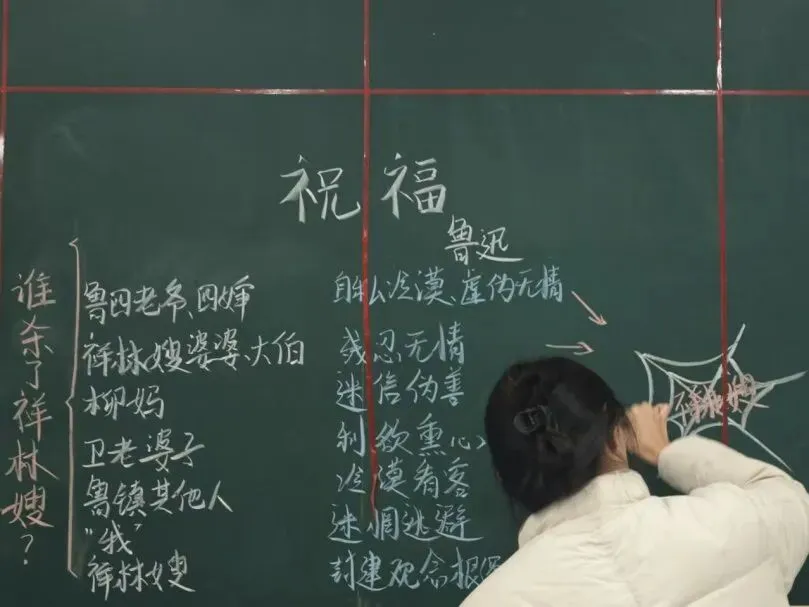 祝福
鲁迅
谁杀了祥林嫂?
鲁四老爷、四婶
自私冷漠、虚伪无情
祥林嫂婆婆、大伯
残忍无情
柳妈
迷信伪善
卫老婆子
利欲熏心
鲁镇其他人
冷漠看客
"我"
迷惘逃避
祥林嫂
封建观念根深
祥林嫂